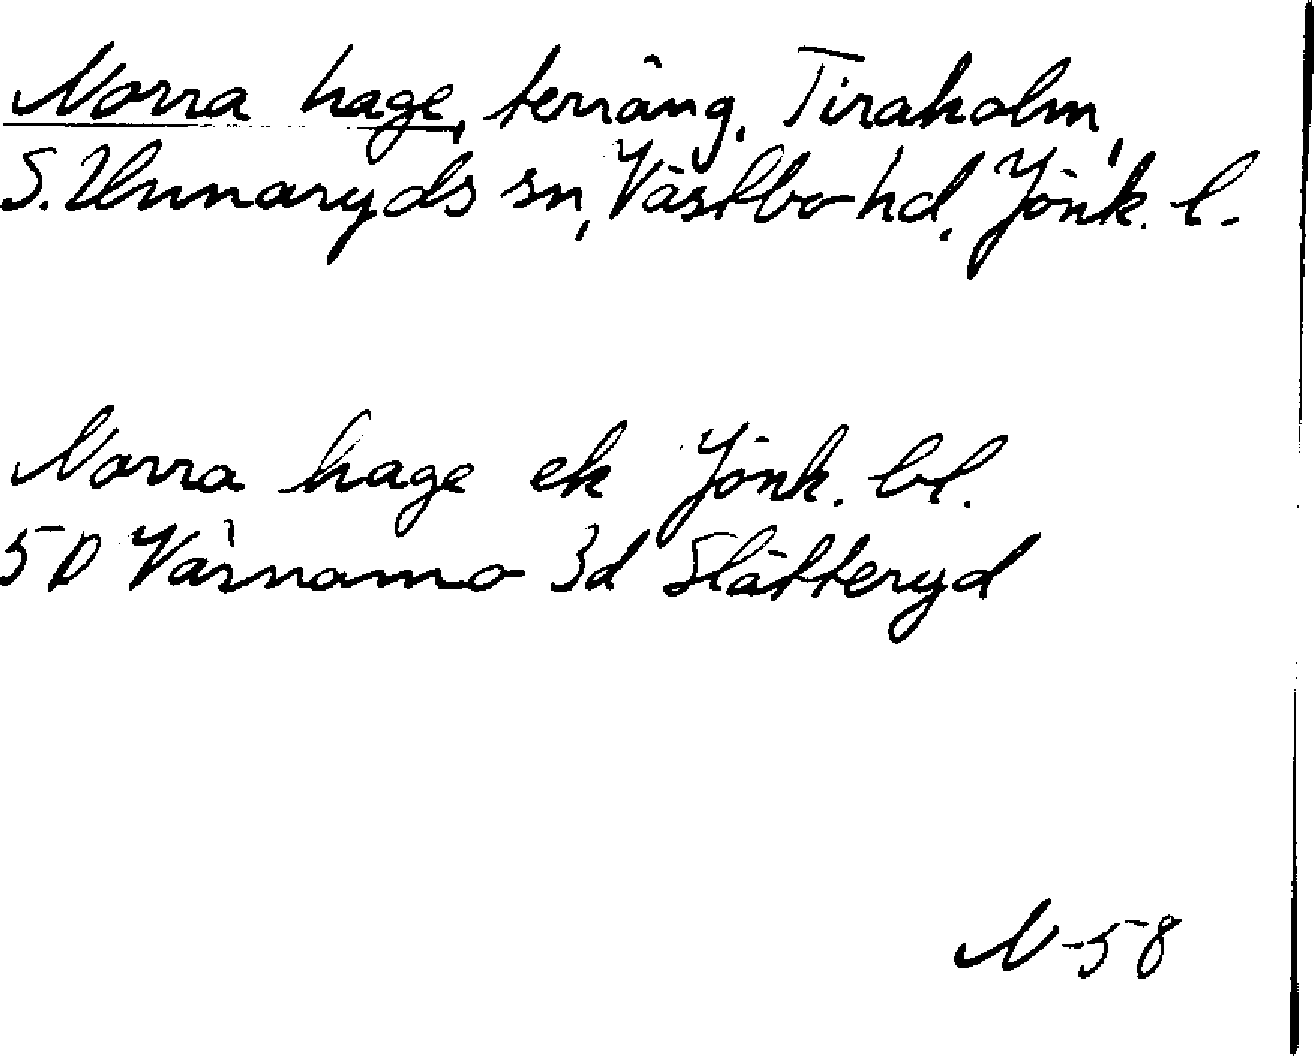 Norra hage, terräng, Tiraholm,
S. Unnaryds sn, Västbo hd, Jönk. l.
Norra hage ek Jönk. bl.
5D Värnamo 3d Slätteryd
N-58